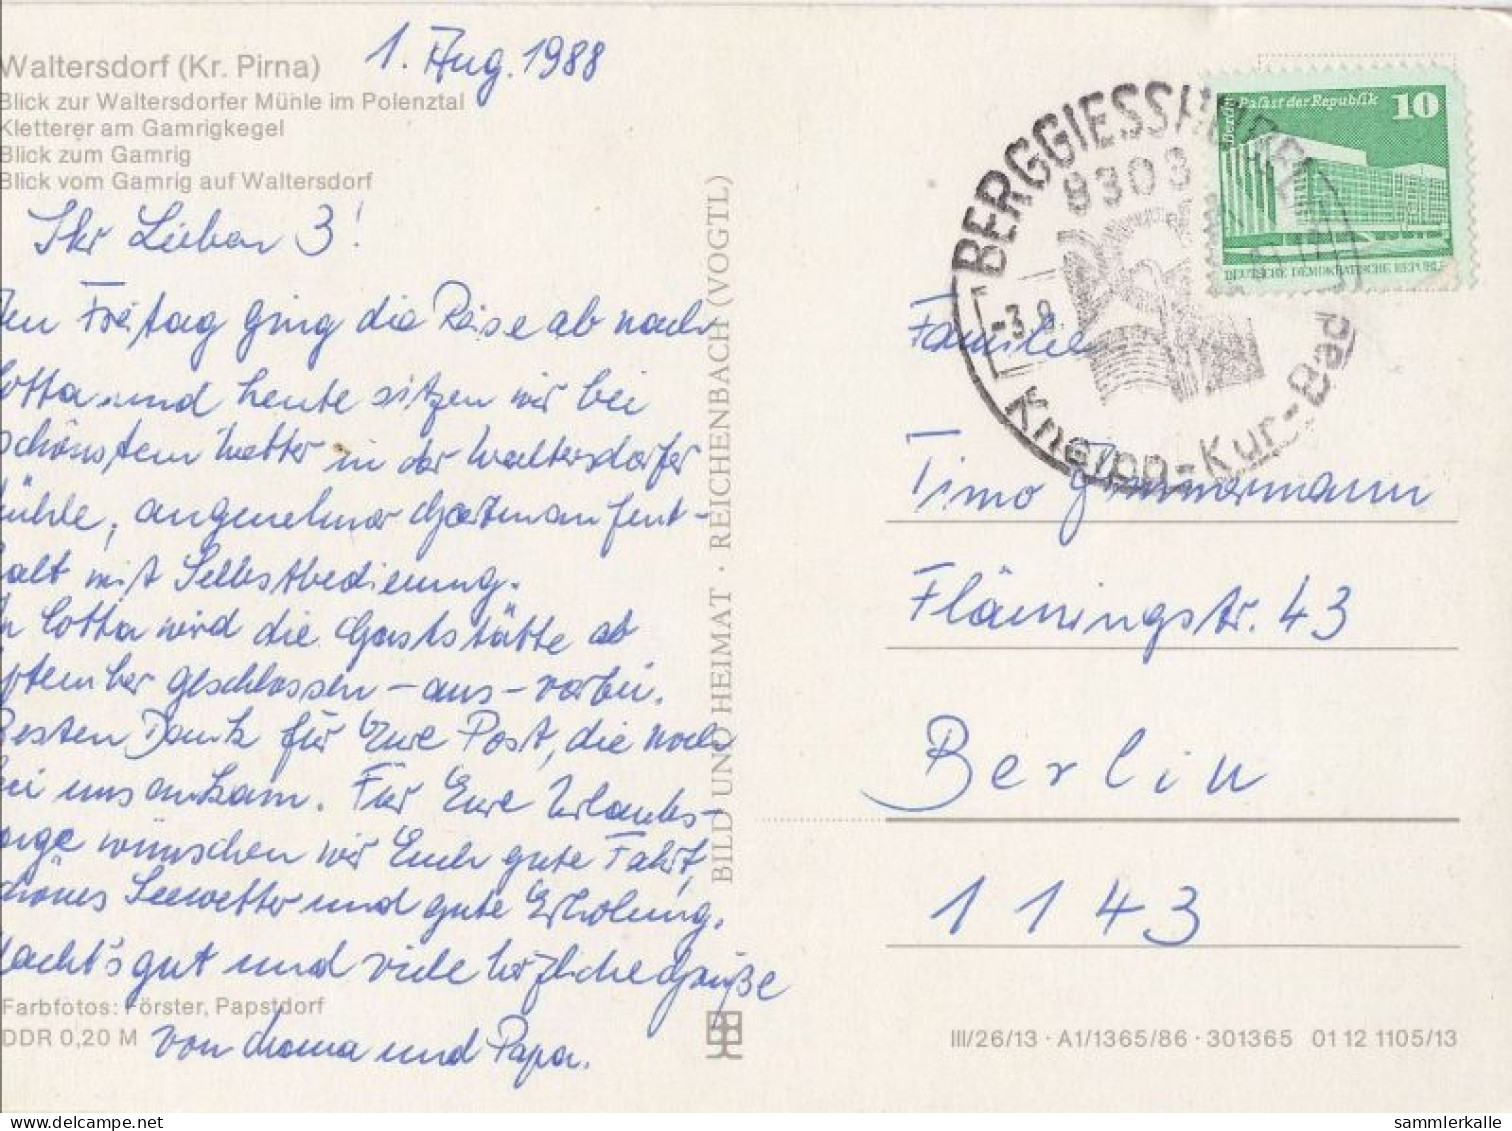 Waltersdorf (Kr. Pirna)
1. Aug. 1988
Blick zur Waltersdorfer Mühle im Polenztal
Kletterer am Gamrigkegel
Blick zum Gamrig
Blick vom Gamrig auf Waltersdorf
Ihr Lieben 3!
en Freitag ging die Reise ab nach
otta und heute sitzen wir bei
schönstem Wetter in der Waltersdorfer
ühle, angenehmer Gartenaufent-
alt mit Selbstbedienung.
n Cotta wird die Gaststätte ab
ptember geschlossen – aus – vorbei.
Besten Dank für Eure Post, die noch
bei uns ankam. Für Eure Urlaubs-
age wünschen wir Euch gute Fahrt,
chönes Seewetter und gute Erholung.
Macht's gut und viele herzliche Grüße
von Mama und Papa.
Farbfotos: Förster, Papstdorf
DDR 0,20 M
BILD UND HEIMAT · REICHENBACH (VOGTL)
BERGGIESSHÜBEL
8303
-3.8.
Kneipp-Kur-Bad
Berlin Palast der Republik 10
DEUTSCHE DEMOKRATISCHE REPUBLIK
Familie
Timo Zimmermann
Flämingstr. 43
Berlin
1143
III/26/13 · A1/1365/86 · 301365 01 12 1105/13
sammlerkalle
delcampe.net